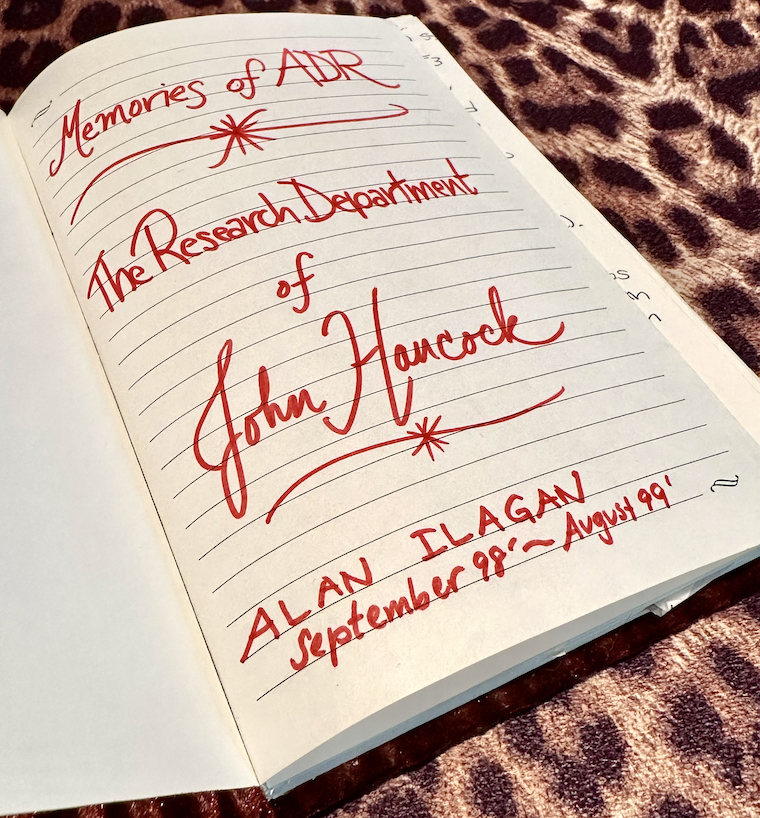 Memories of ADR
The Research Department
of
John Hancock
ALAN ILAGAN
September 98' ~ August 99'